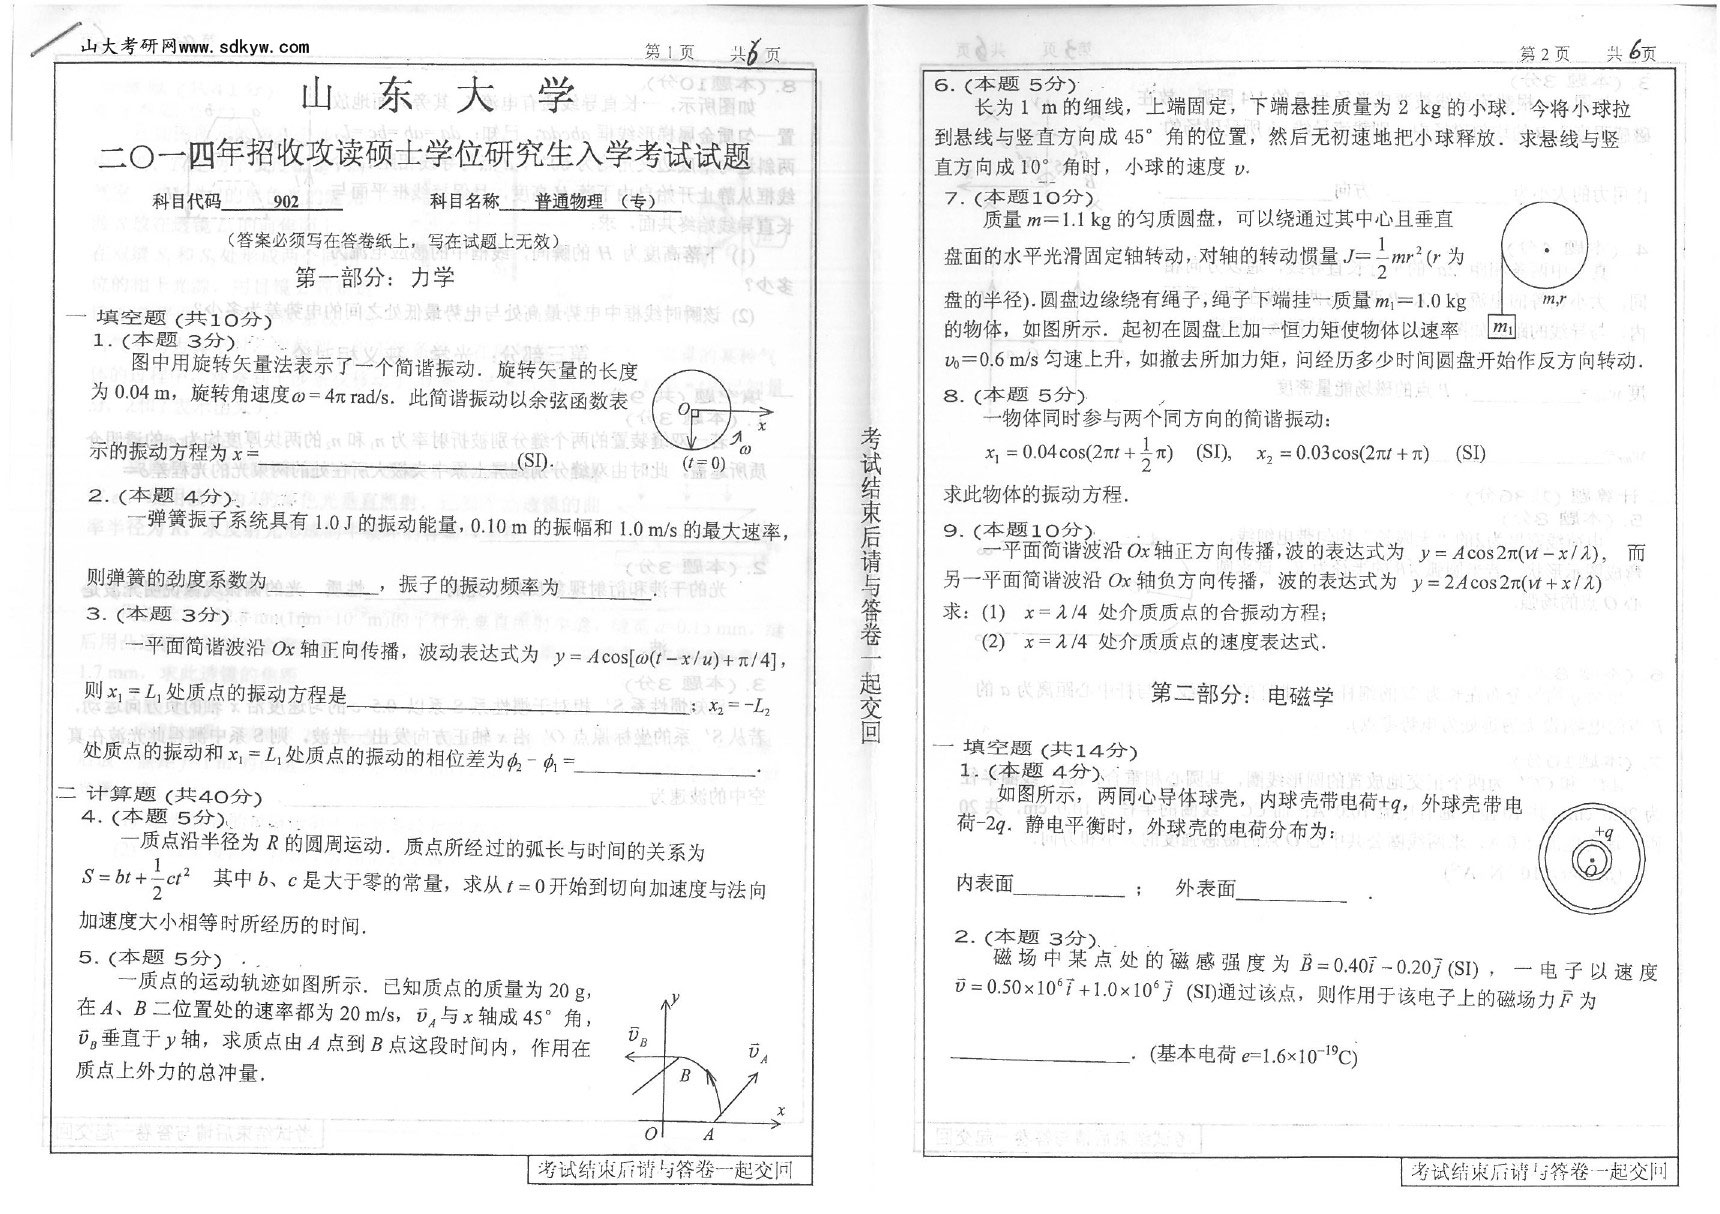 山大考研网www.sdkyw.com
第1页 共6页
山东大学
二〇一四年招收攻读硕士学位研究生入学考试试题
科目代码 902 科目名称 普通物理（专）
（答案必须写在答卷纸上，写在试题上无效）
第一部分：力学
一 填空题 (共10分)
1. (本题 3分)
图中用旋转矢量法表示了一个简谐振动．旋转矢量的长度
为 0.04 m，旋转角速度ω = 4π rad/s．此简谐振动以余弦函数表
示的振动方程为 x = (SI)．
O x ω (t = 0)
2. (本题 4分)
一弹簧振子系统具有 1.0 J 的振动能量，0.10 m 的振幅和 1.0 m/s 的最大速率，
则弹簧的劲度系数为________，振子的振动频率为________．
3. (本题 3分)
一平面简谐波沿 Ox 轴正向传播，波动表达式为 y = A cos[ω(t − x/u) + π/4]，
则 x₁ = L₁ 处质点的振动方程是________；x₂ = −L₂
处质点的振动和 x₁ = L₁ 处质点的振动的相位差为 ϕ₂ − ϕ₁ =________．
二 计算题 (共40分)
4. (本题 5分)
一质点沿半径为 R 的圆周运动．质点所经过的弧长与时间的关系为
S = bt + 1/2 ct² 其中 b、c 是大于零的常量，求从 t = 0 开始到切向加速度与法向
加速度大小相等时所经历的时间．
5. (本题 5分)
一质点的运动轨迹如图所示．已知质点的质量为 20 g，
在 A、B 二位置处的速率都为 20 m/s，v⃗_A 与 x 轴成 45°角，
v⃗_B 垂直于 y 轴，求质点由 A 点到 B 点这段时间内，作用在
质点上外力的总冲量．
y
v⃗_B
v⃗_A
B
x
O A
考试结束后请与答卷一起交回
考试结束后请与答卷一起交回
第2页 共6页
6. (本题 5分)
长为 1 m 的细线，上端固定，下端悬挂质量为 2 kg 的小球．今将小球拉
到悬线与竖直方向成 45°角的位置，然后无初速地把小球释放．求悬线与竖
直方向成 10°角时，小球的速度 v.
7. (本题10分)
质量 m＝1.1 kg 的匀质圆盘，可以绕通过其中心且垂直
盘面的水平光滑固定轴转动，对轴的转动惯量 J＝1/2 mr² (r 为
盘的半径)．圆盘边缘绕有绳子，绳子下端挂一质量 m₁＝1.0 kg
的物体，如图所示．起初在圆盘上加一恒力矩使物体以速率
v₀＝0.6 m/s 匀速上升，如撤去所加力矩，问经历多少时间圆盘开始作反方向转动．
m,r
m₁
8. (本题 5分)
一物体同时参与两个同方向的简谐振动：
x₁ = 0.04cos(2πt + 1/2 π) (SI)， x₂ = 0.03cos(2πt + π) (SI)
求此物体的振动方程．
9. (本题10分)
一平面简谐波沿 Ox 轴正方向传播，波的表达式为 y = A cos2π(νt − x/λ)， 而
另一平面简谐波沿 Ox 轴负方向传播，波的表达式为 y = 2A cos2π(νt + x/λ)
求：(1) x = λ/4 处介质质点的合振动方程；
(2) x = λ/4 处介质质点的速度表达式．
第二部分：电磁学
一 填空题 (共14分)
1. (本题 4分)
如图所示，两同心导体球壳，内球壳带电荷+q，外球壳带电
荷−2q．静电平衡时，外球壳的电荷分布为：
内表面________； 外表面________．
+q
O
2. (本题 3分)
磁场中某点处的磁感强度为 B⃗ = 0.40i⃗ − 0.20j⃗ (SI)，一电子以速度
v⃗ = 0.50×10⁶ i⃗ + 1.0×10⁶ j⃗ (SI)通过该点，则作用于该电子上的磁场力 F⃗ 为
________．(基本电荷 e=1.6×10⁻¹⁹C)
考试结束后请与答卷一起交回